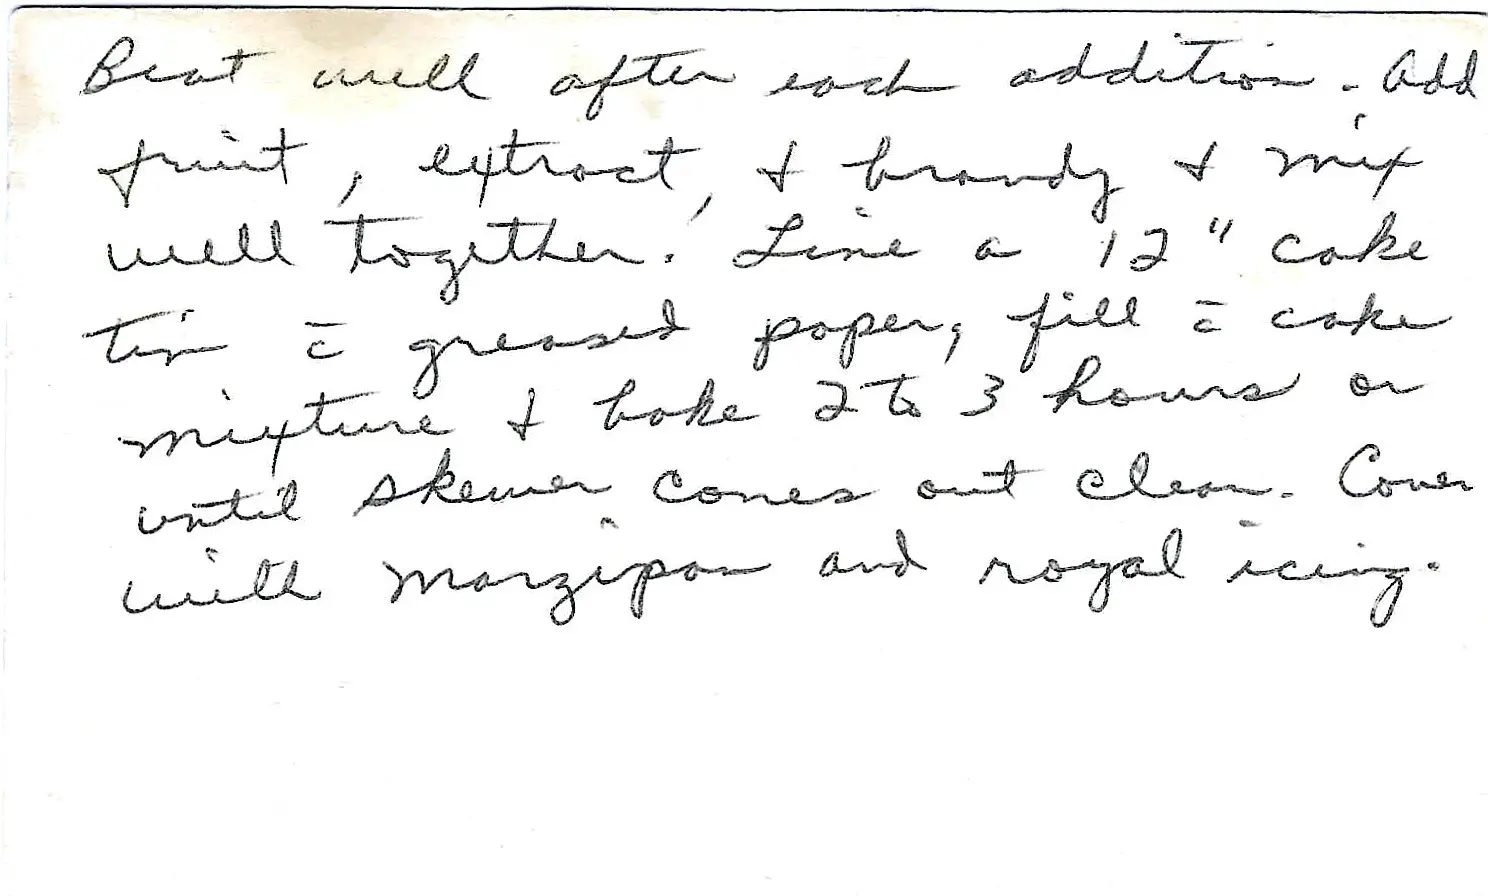 Beat well after each addition. Add
fruit, extract, & brandy & mix
well together. Line a 12" cake
tin c̄ greased paper, fill c̄ cake
mixture & bake 2 to 3 hours or
until skewer comes out clean. Cover
with marzipan and royal icing.